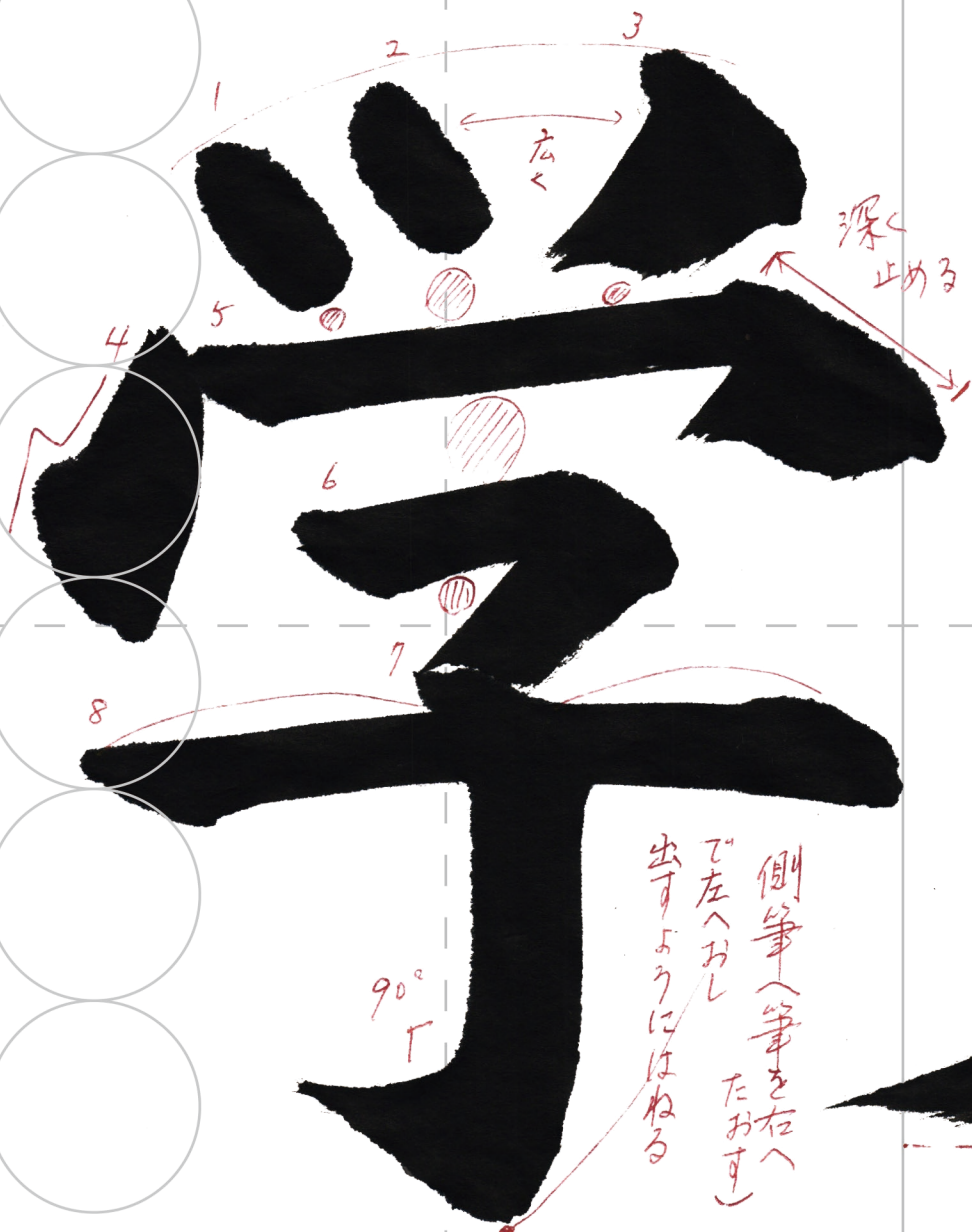 学
1
2
3
広く
深く
止める
4
5
6
7
8
90°
側筆(筆を右へ
たおす)
で左へおし
出すようにはねる